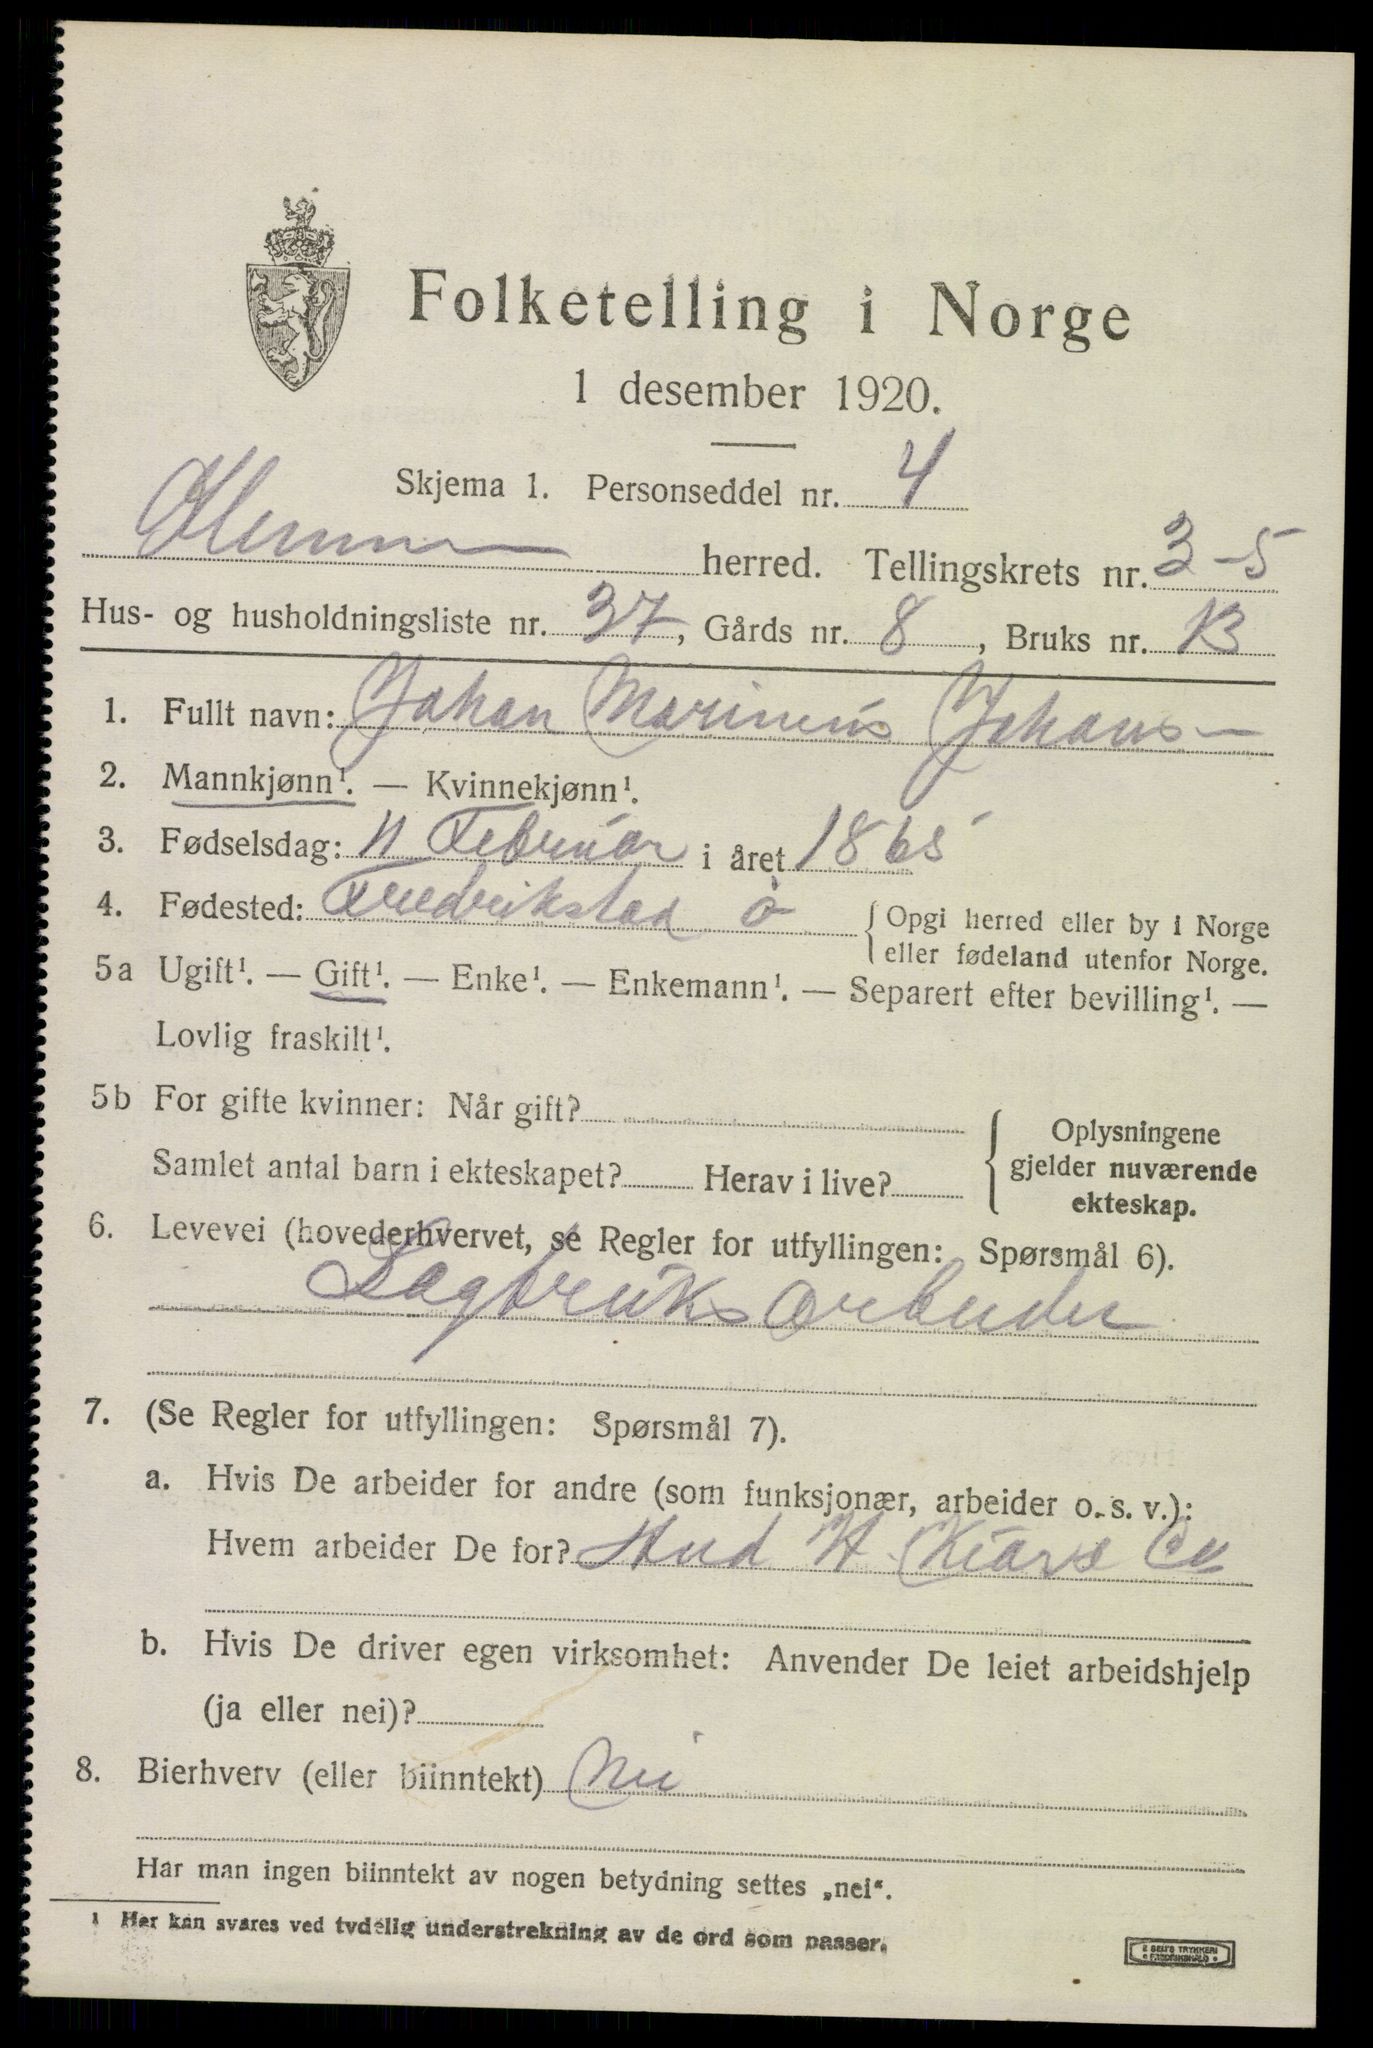 Folketelling i Norge
1 desember 1920.
Skjema 1. Personseddel nr. 4
herred. Tellingskrets nr. 3-5
Hus- og husholdningsliste nr. 37, Gårds nr. 8, Bruks nr. 13
1. Fullt navn: Johan Marinius Johans-
2. Mannkjønn¹. — Kvinnekjønn¹.
3. Fødselsdag: 11 Februar i året 1865
4. Fødested: Fredrikstad ö { Opgi herred eller by i Norge
eller fødeland utenfor Norge.
5a Ugift¹. — Gift¹. — Enke¹. — Enkemann¹. — Separert efter bevilling¹. —
Lovlig fraskilt¹.
5b For gifte kvinner: Når gift?
Samlet antal barn i ekteskapet? Herav i live?
{ Oplysningene
gjelder nuværende
ekteskap.
6. Levevei (hovederhvervet, se Regler for utfyllingen: Spørsmål 6).
Sagbruksarbeider
7. (Se Regler for utfyllingen: Spørsmål 7).
a. Hvis De arbeider for andre (som funksjonær, arbeider o. s. v.):
Hvem arbeider De for? And H Kiær & Co
b. Hvis De driver egen virksomhet: Anvender De leiet arbeidshjelp
(ja eller nei)?
8. Bierhverv (eller biinntekt) Nei
Har man ingen biinntekt av nogen betydning settes „nei“.
1 Her kan svares ved tydelig understrekning av de ord som passer.
E SEM'S TRYKKERI
FREDRIKSHALD